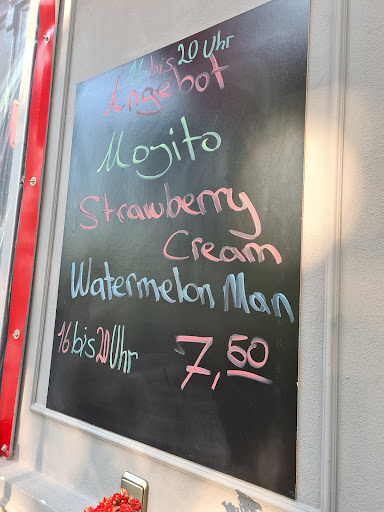 16 bis 20 Uhr
Angebot
Mojito
Strawberry
Cream
Watermelon Man
16 bis 20 Uhr 7,50